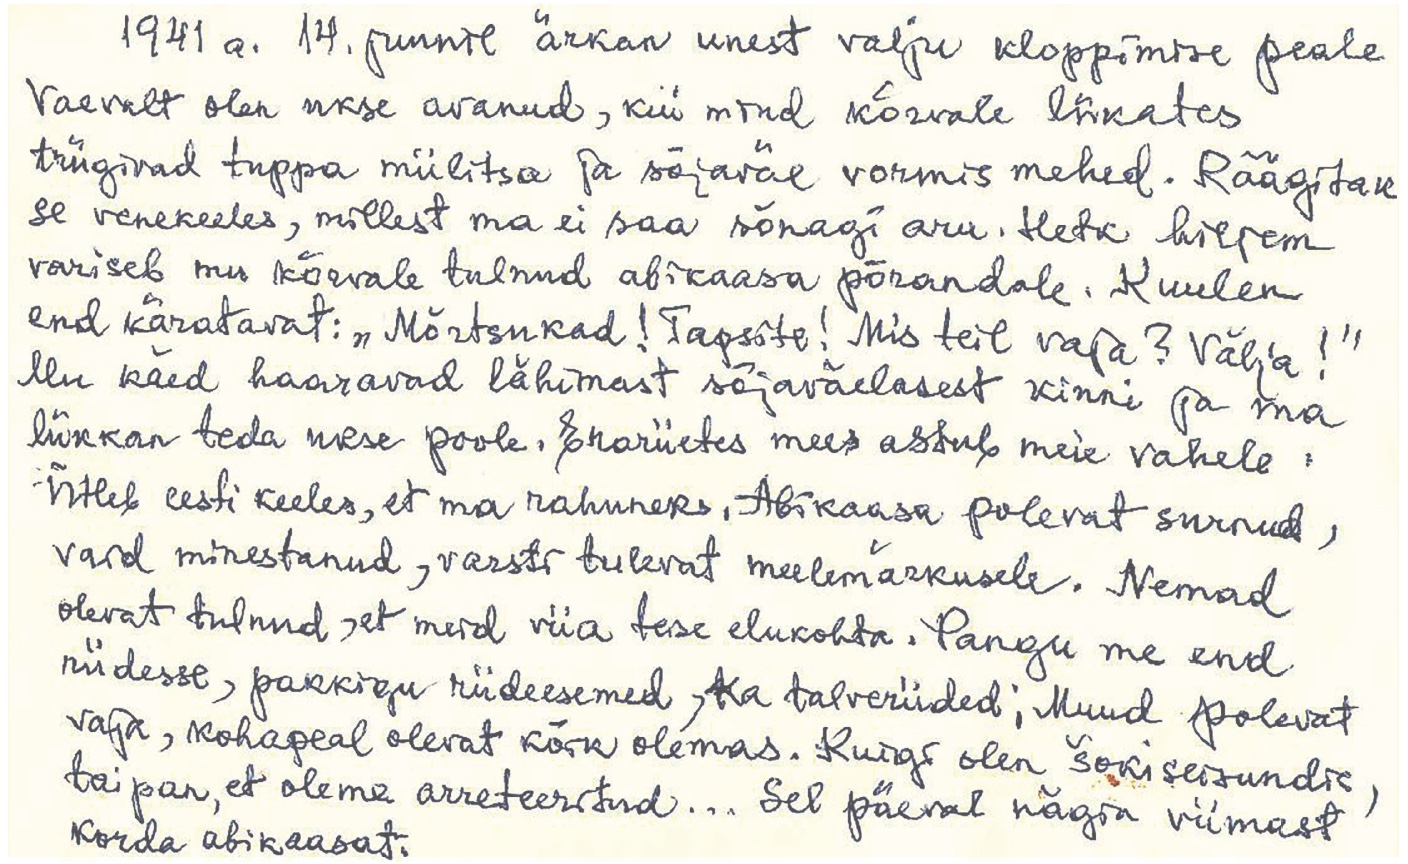 1941 a. 14. juunil ärkan unest valju kloppimise peale
Vaevalt olen ukse avanud, kui mind kõrvale lükates
trügivad tuppa miilitsa ja sõjaväe vormis mehed. Räägitak
se venekeeles, millest ma ei saa sõnagi aru. Hetk hiljem
variseb mu kõrvale tulnud abikaasa põrandale. Kuulen
end käratavat: „Mõrtsukad! Tapsite! Mis teil vaja? Välja!"
Mu käed haaravad lähimast sõjaväelasest kinni ja ma
lükkan teda ukse poole. Erariietes mees astub meie vahele.
Ütleb eesti keeles, et ma rahuneks. Abikaasa polevat surnud,
vaid minestanud, varsti tulevat meelemärkusele. Nemad
olevat tulnud, et meid viia teise elukohta. Pangu me end
riidesse, pakkigu riideesemed, ka talveriided; Muud polevat
vaja, kohapeal olevat kõik olemas. Kuigi olen šokiseisundis,
taipan, et oleme arreteeritud... Sel päeval nägin viimast
korda abikaasat.